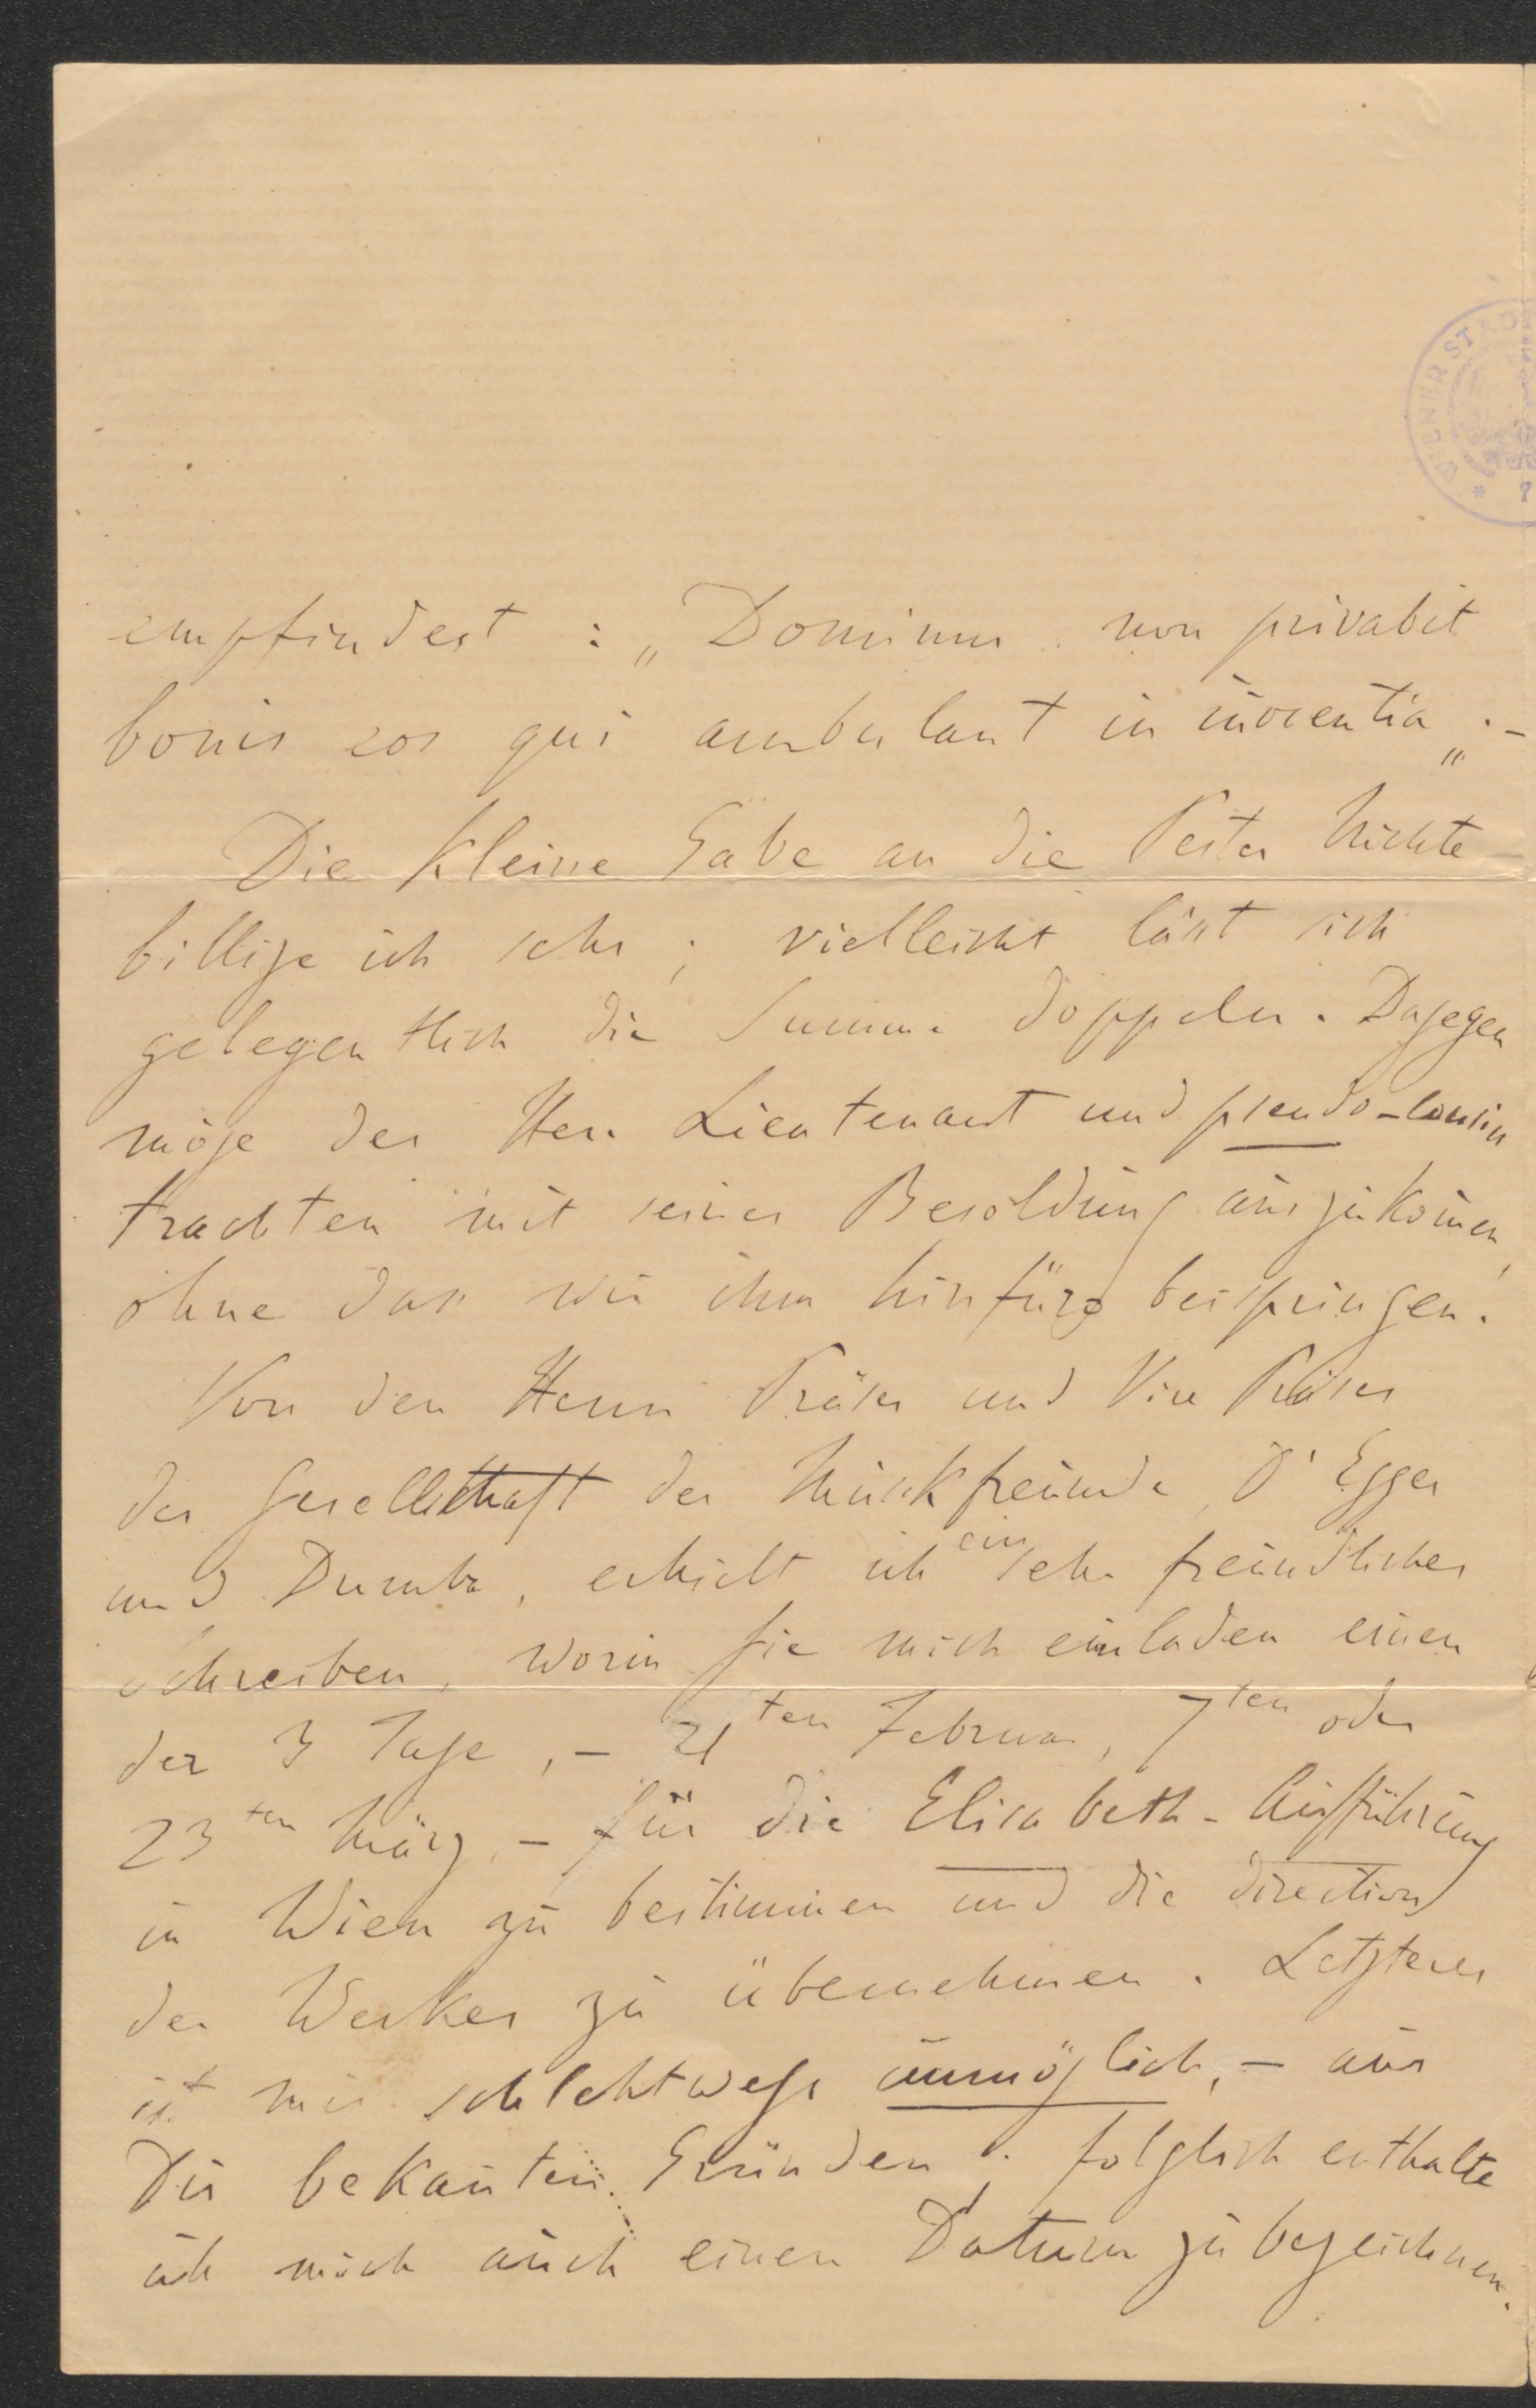 empfindest : „Dominus non privabit
bonis eos qui ambulant in inocentia„. –
Die kleine Gabe an die Pester Nichte
billige ich sehr ; vielleicht läst sich
gelegentlich die Summe doppeln. Dagegen
möge der Herr Lieutenant und pseudo-Cousin
trachten mit seiner Besoldung auszukom̄en,
ohne dass wir ihm hinfüro beispringen.
Von den Herrn Präses und Vice Präses
der Gesellschaft der Musikfreunde, Dr Egger
und Dumba, erhielt ich ein sehr freundliches
Schreiben, worin sie mich einladen einen
der 3 Tage, – 21ten Februar, 7ten oder
23ten März, – für die Elisabeth-Aufführung
in Wien zu bestimmen und die Direction
des Werkes zu übernehmen. Letzteres
ist mir schlechtwegs unmöglich, – aus
Dir bekan̄ten Gründen ; folglich enthalte
ich mich auch einen Datum zu bezeichnen.
WIENER STAD